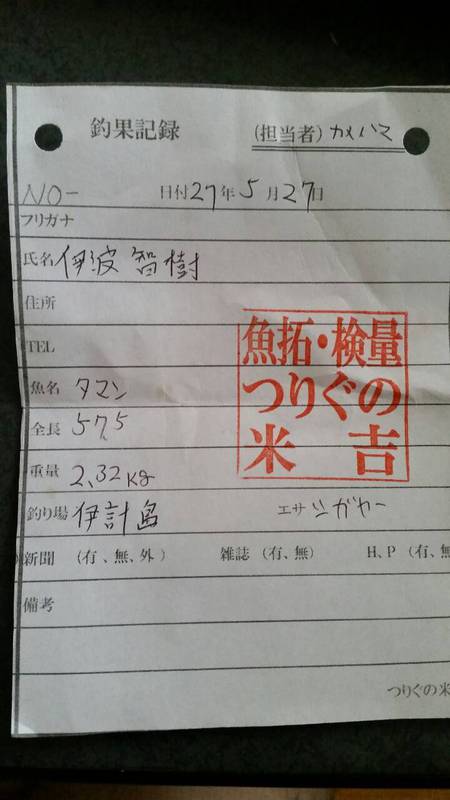 釣果記録 (担当者) カメハマ
NO- 日付 27年 5月 27日
フリガナ
氏名 伊波 智樹
住所
TEL
魚名 タマン
全長 57.5
重量 2.32kg
釣り場 伊計島 エサ シガヤー
新聞 (有、無、外) 雑誌 (有、無) H、P (有、無
備考
魚拓・検量
つりぐの
米吉
つりぐの米